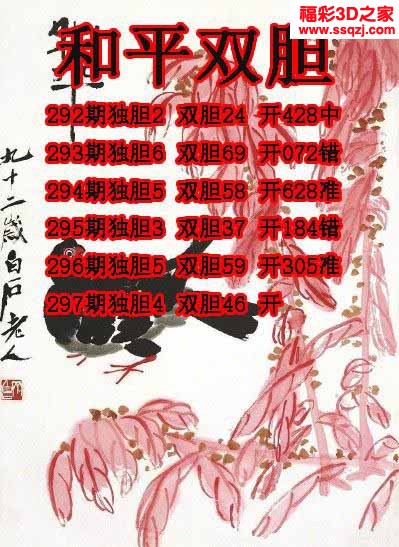 福彩3D之家
www.ssqzj.com
和平双胆
292期独胆2 双胆24 开428中
293期独胆6 双胆69 开072错
294期独胆5 双胆58 开628准
295期独胆3 双胆37 开184错
296期独胆5 双胆59 开305准
297期独胆4 双胆46 开
九十二岁白石老人